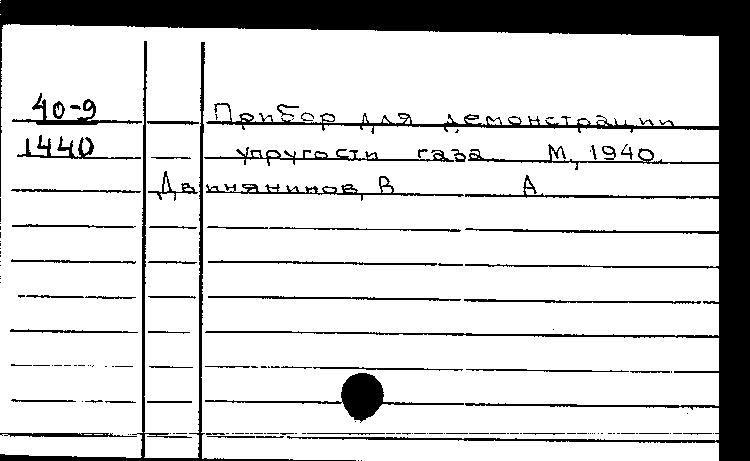 40-9 Прибор для демонстрации
1440 упругости газа М, 1940.
Двинянинов, В А.